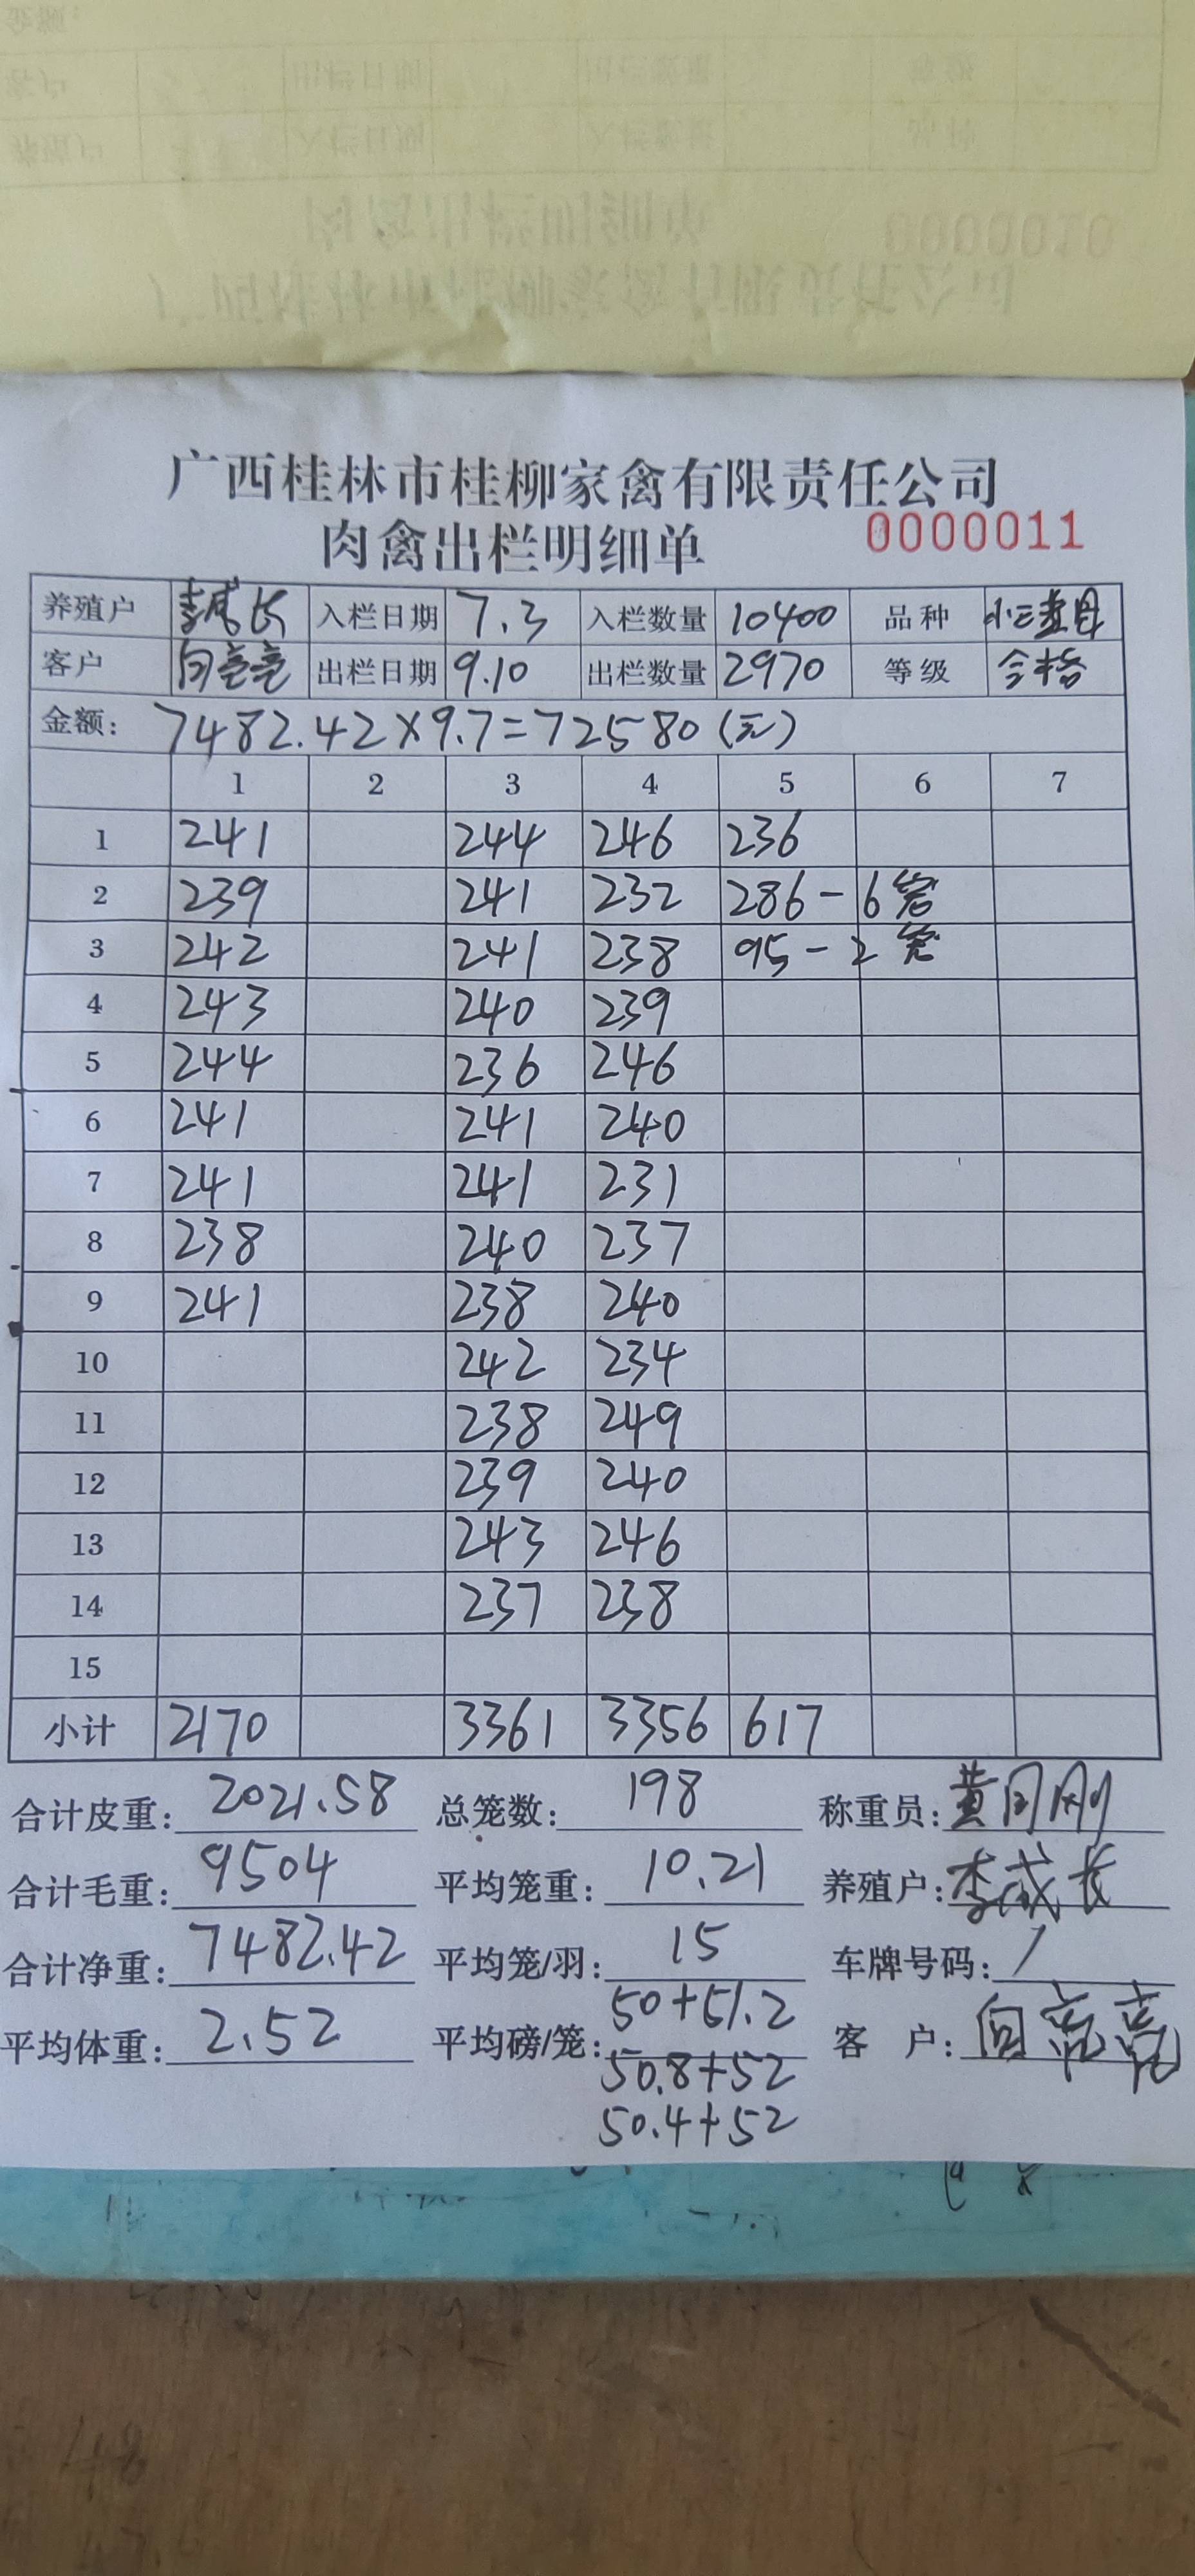 广西桂林市桂柳家禽有限责任公司
肉禽出栏明细单 0000011
养殖户 李成长 入栏日期 7.3 入栏数量 10400 品种 小三黄母
客户 向亮亮 出栏日期 9.10 出栏数量 2970 等级 合格
金额: 7482.42×9.7=72580(元)
1 2 3 4 5 6 7
1 241 244 246 236
2 239 241 232 286-6笼
3 242 241 238 95-2笼
4 243 240 239
5 244 236 246
6 241 241 240
7 241 241 231
8 238 240 237
9 241 238 240
10 242 234
11 238 249
12 239 240
13 243 246
14 237 238
15
小计 2170 3361 3356 617
合计皮重: 2021.58 总笼数: 198 称重员: 黄 刚
合计毛重: 9504 平均笼重: 10.21 养殖户: 李成长
合计净重: 7482.42 平均笼/羽: 15 车牌号码: /
平均体重: 2.52 平均磅/笼: 50+51.2 客 户: 向亮亮
50.8+52
50.4+52